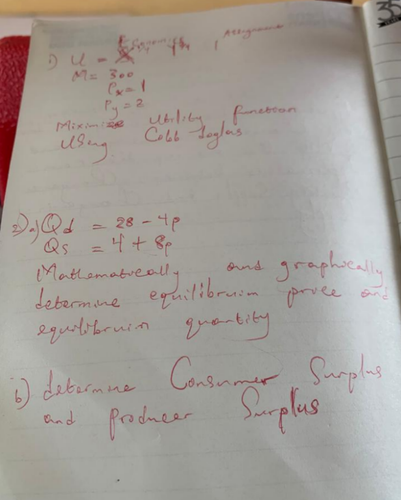 Economics Assignment
1) U =
M = 300
Px = 1
Py = 2
Miximize Utility function
Using Cobb Doglas
2) a) Qd = 28 - 4p
Qs = 4 + 8p
Mathematically and graphically
determine equilibruim price and
equilibruim quantity
b) determine Consumer Surplus
and producer Surplus